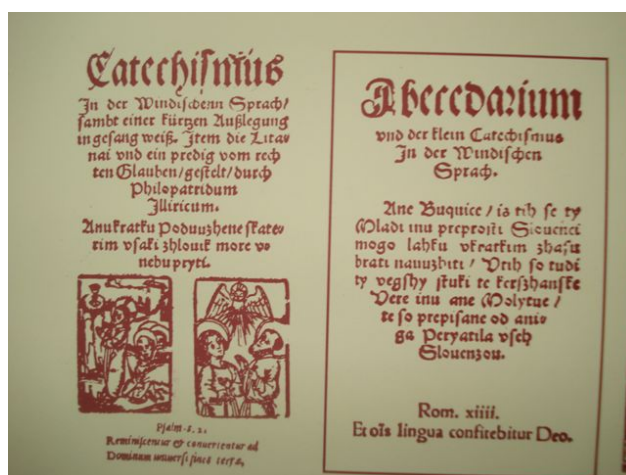 Catechismus
In der Windischenn Sprach/
sambt einer kürtzen Außlegung
in gesang weiß. Item die Lita⸗
nai vnd ein predig vom rech
ten Glauben/gestelt/durch
Philopatridum
Illiricum.
Anu kratku Poduuzhene skate⸗
rim vsaki zhlouik more vo
nebu pryti.
Psalm. 8. 2.
Reminiscentur & conuertentur ad
Dominum uniuersi fines terræ.
Abecedarium
vnd der klein Catechismus
In der Windischen
Sprach.
Ane Buquice / is tih se ty
Mladi inu preprosti Slouenci
mogo lahku vkratkim zhasu
brati nauuzhiti / Vtih so tudi
ty vegshy stuki te kerszhanske
Vere inu ane Molytue /
te so prepisane od aniga
ga Peryatila vseh
Slouenzou.
Rom. xiiii.
Et oīs lingua confitebitur Deo.